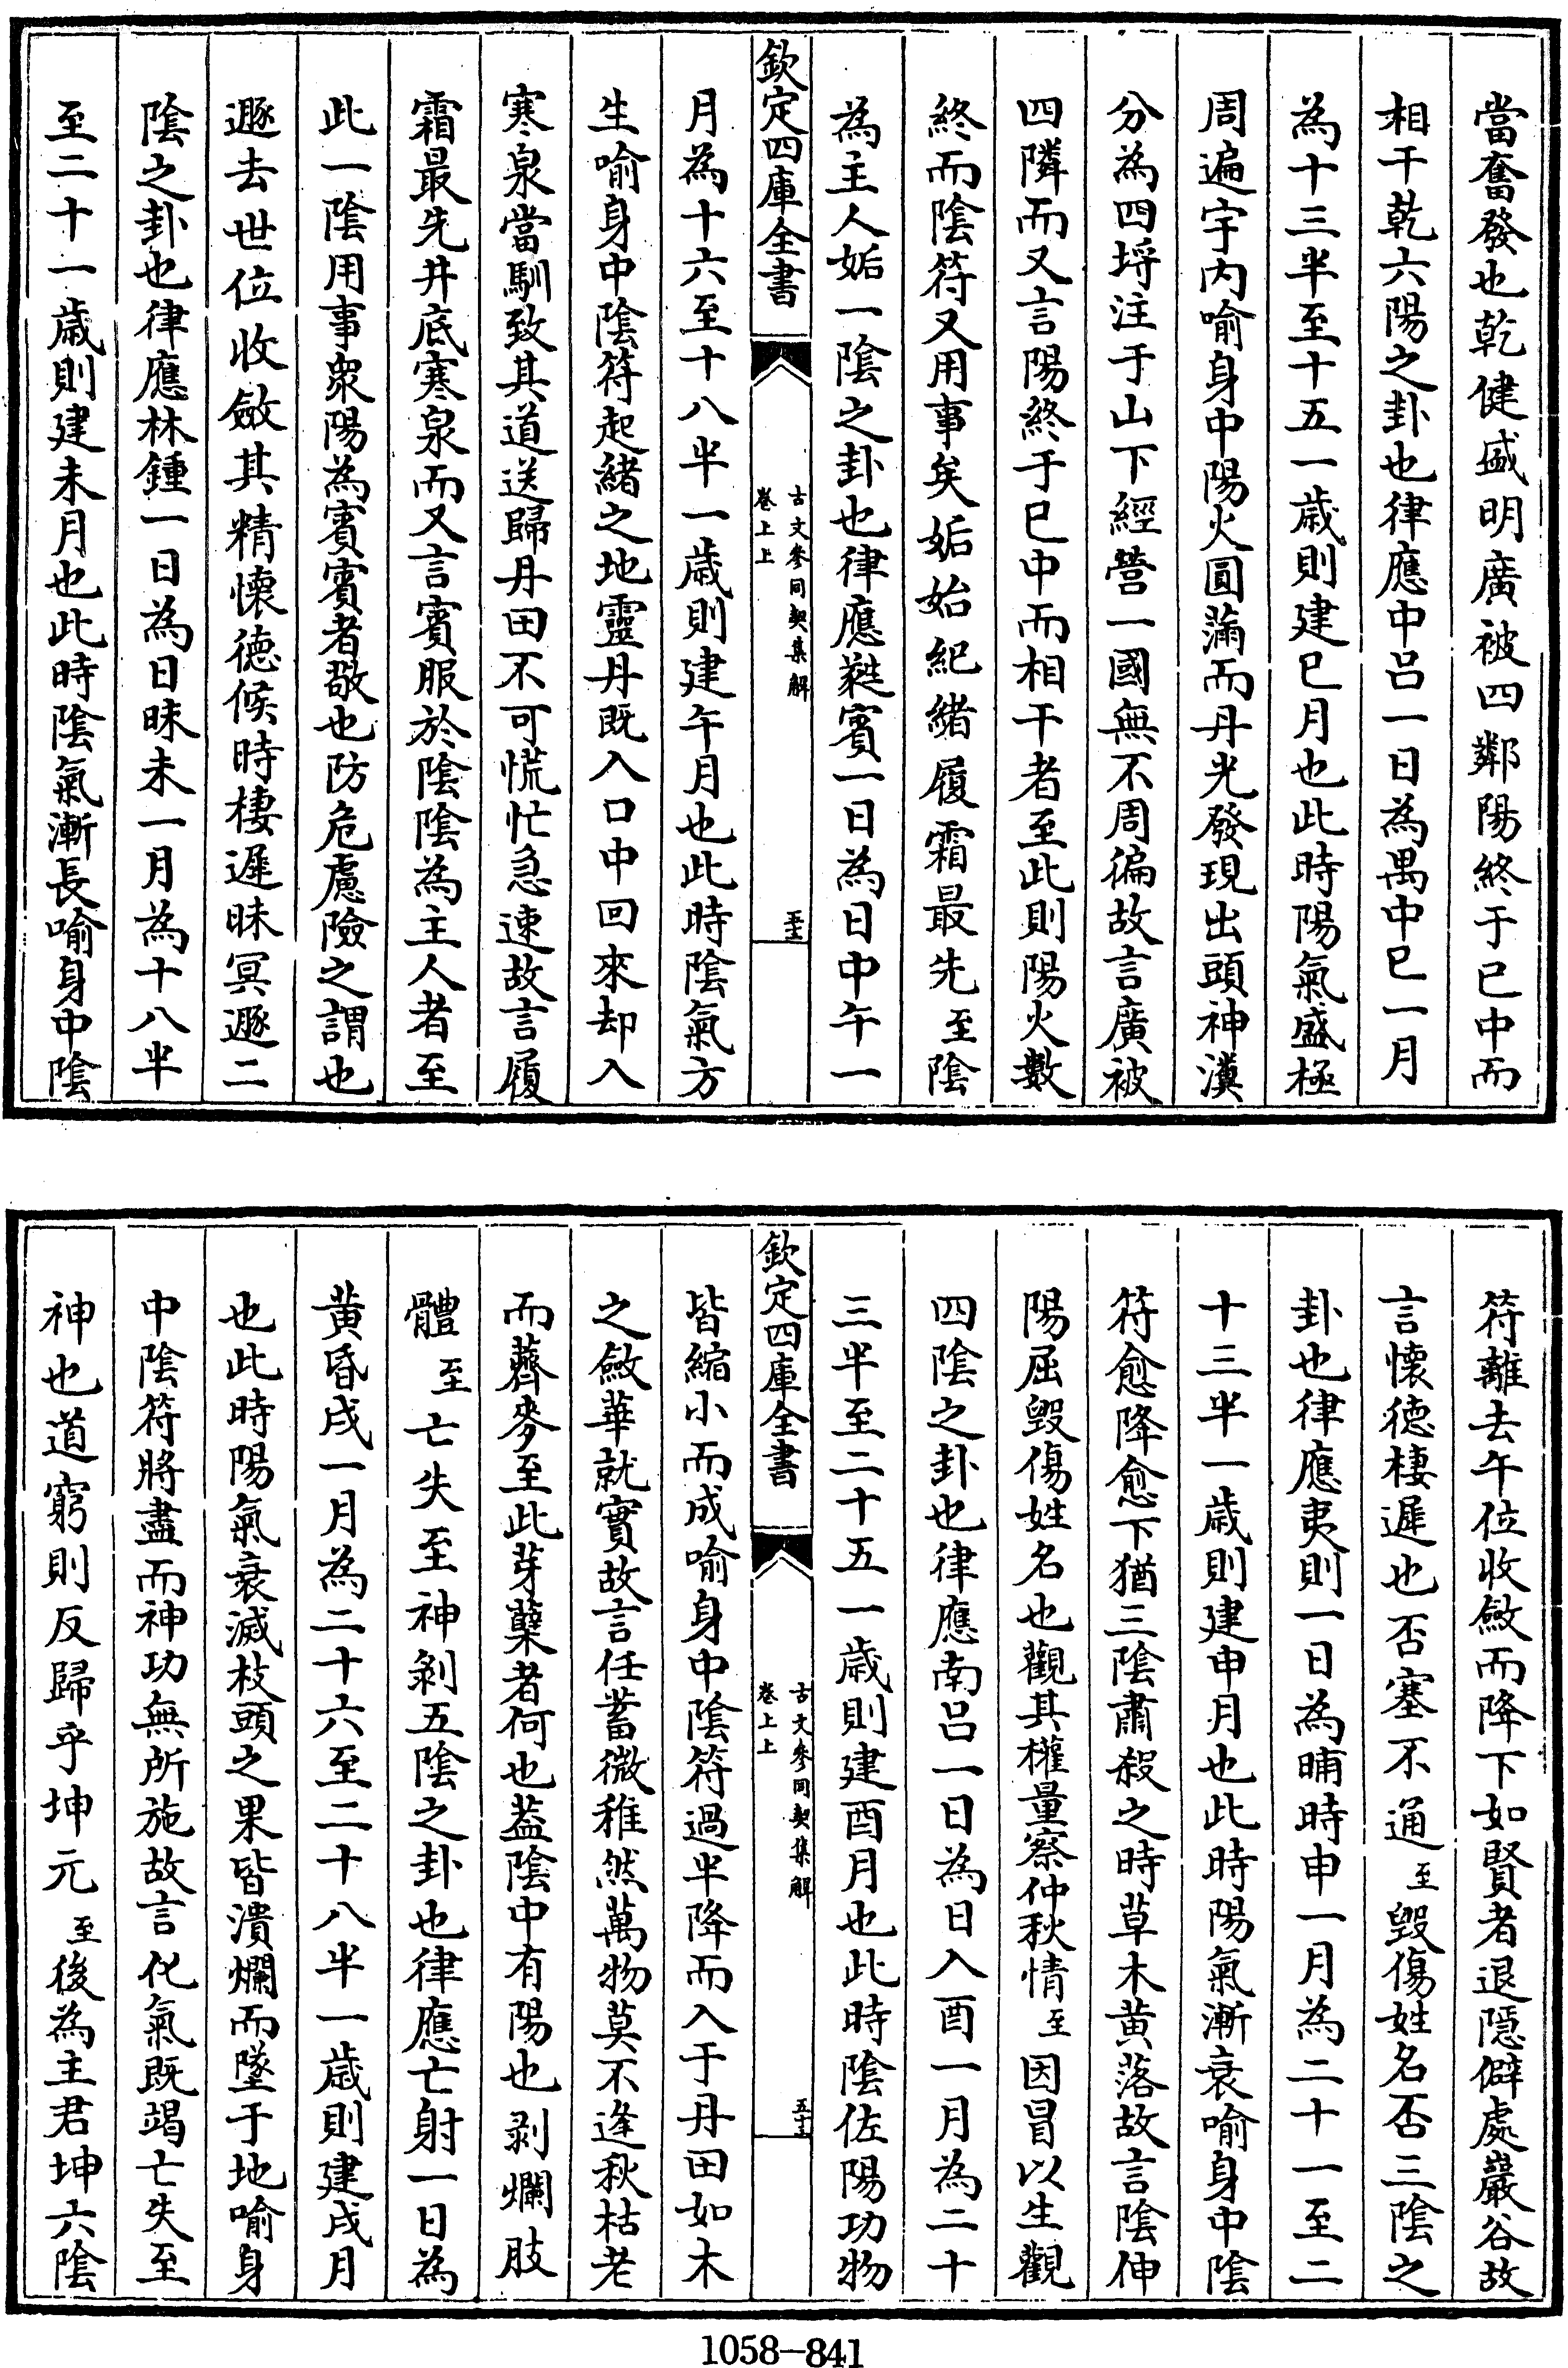 當奮發也乾健盛明廣被四鄰陽終于巳中而
相干乾六陽之卦也律應中呂一日為禺中巳一月
為十三半至十五一歲則建巳月也此時陽氣盛極
周遍宇内喻身中陽火圓滿而丹光發現出頭神漢
分為四埒注于山下經營一國無不周徧故言廣被
四隣而又言陽終于巳中而相干者至此則陽火數
終而陰符又用事矣姤始紀緒履霜最先至陰
為主人姤一陰之卦也律應蕤賓一日為日中午一
欽定四庫全書
古文參同契集解
卷上上
月為十六至十八半一歲則建午月也此時陰氣方
生喻身中陰符起緒之地靈丹既入口中回來却入
寒泉當馴致其道送歸丹田不可慌忙急速故言履
霜最先井底寒泉而又言賓服於陰陰為主人者至
此一陰用事衆陽為賓賓者敬也防危慮險之謂也
遯去世位收斂其精懐徳候時棲遲昧冥遯二
陰之卦也律應林鍾一日為日昧未一月為十八半
至二十一歲則建未月也此時陰氣漸長喻身中陰
符離去午位收斂而降下如賢者退隠僻處巖谷故
言懐徳棲遲也否塞不通至毀傷姓名否三陰之
卦也律應夷則一日為晡時申一月為二十一至二
十三半一歲則建申月也此時陽氣漸衰喻身中陰
符愈降愈下猶三陰肅殺之時草木黄落故言陰伸
陽屈毀傷姓名也觀其權量察仲秋情至因冒以生觀
四陰之卦也律應南呂一日為日入酉一月為二十
三半至二十五一歲則建酉月也此時陰佐陽功物
欽定四庫全書
古文參同契集解
卷上上
皆縮小而成喻身中陰符過半降而入于丹田如木
之斂華就實故言任蓄微稚然萬物莫不逢秋枯老
而薺麥至此芽蘖者何也葢陰中有陽也剥爛肢
體至亡失至神剥五陰之卦也律應亡射一日為
黄昏戌一月為二十六至二十八半一歲則建戌月
也此時陽氣衰滅枝頭之果皆潰爛而墜于地喻身
中陰符將盡而神功無所施故言化氣既竭亡失至
神也道窮則反歸乎坤元至後為主君坤六陰
1058-841